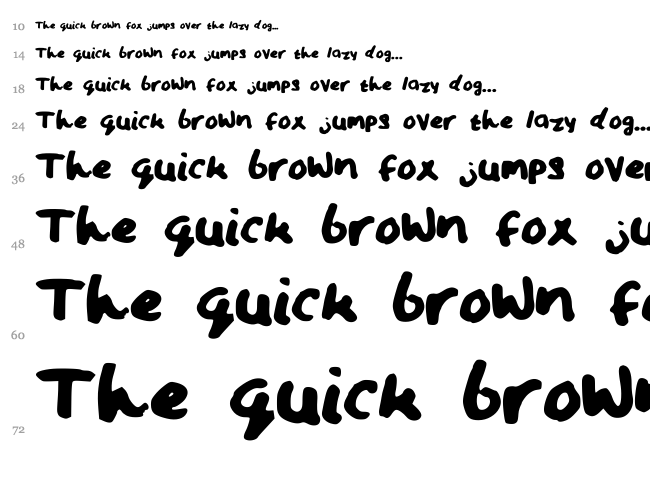 10 The quick brown fox jumps over the lazy dog...
14 The quick brown fox jumps over the lazy dog...
18 The quick brown fox jumps over the lazy dog...
24 The quick brown fox jumps over the lazy dog...
36 The quick brown fox jumps over
48 The quick brown fox ju
60 The quick brown fo
72 The quick brown